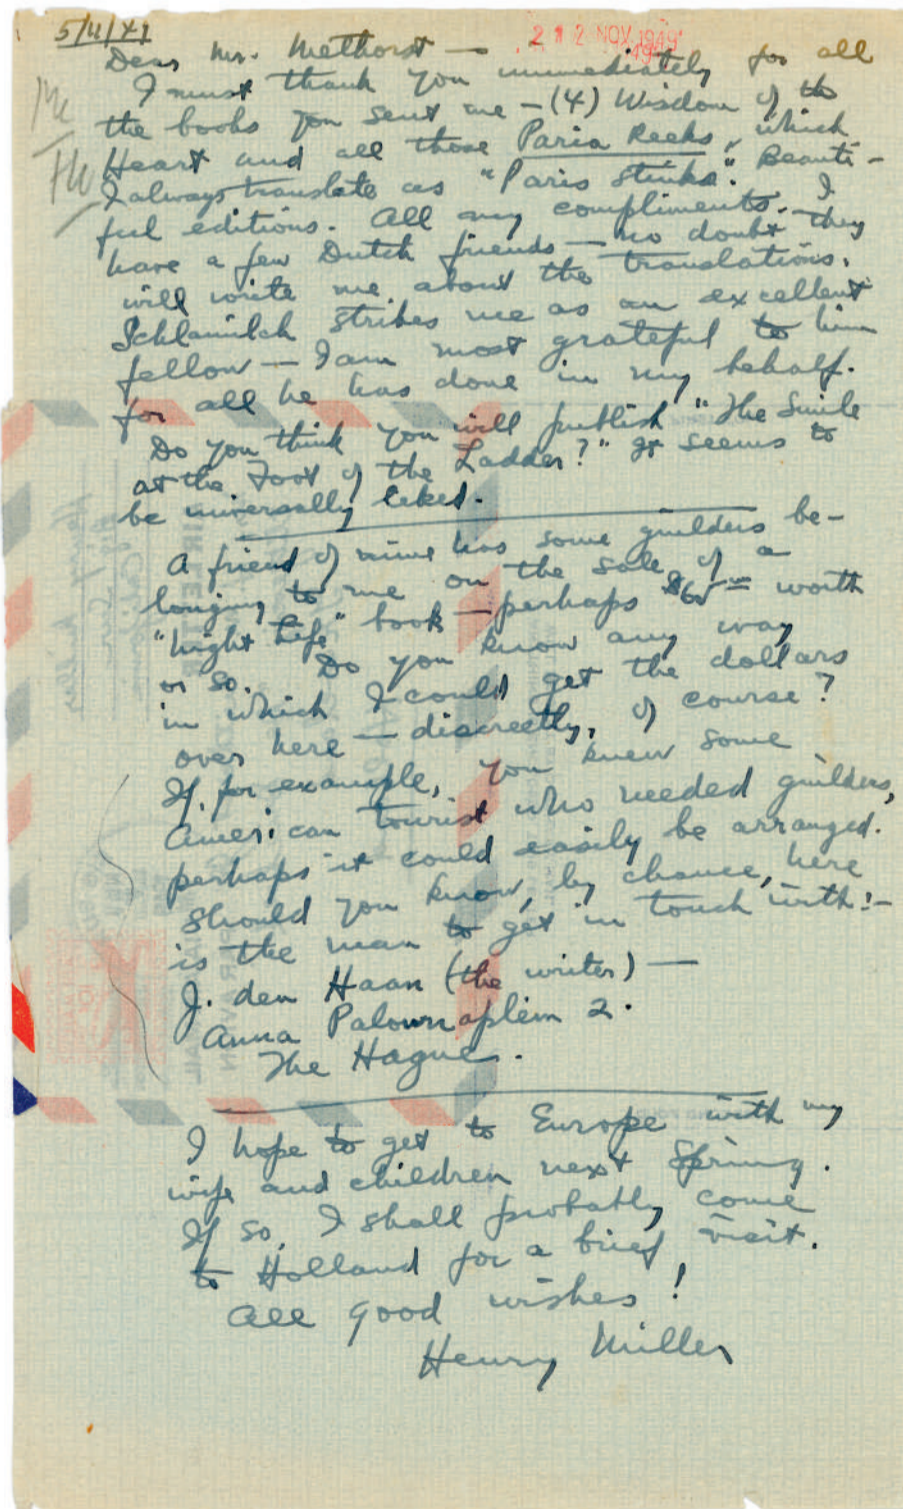 5/11/49
2 1 2 NOV. 1949
Dear Mr. Methorst —
I must thank you immediately for all
the books you sent me — (4) Wisdom of the
Heart and all those Paria Reeks, which
I always translate as "Paris stinks." Beauti-
ful editions. All my compliments. I
have a few Dutch friends — no doubt they
will write me about the translations.
Schlamilch strikes me as an excellent
fellow — I am most grateful to him
for all he has done in my behalf.
Do you think you will publish "The Smile
at the Foot of the Ladder?" It seems to
be universally liked.
A friend of mine has some guilders be-
longing to me on the sale of a
"night life" book — perhaps $65 worth
or so. Do you know any way
in which I could get the dollars
over here — discreetly, of course?
If, for example, you knew some
American tourist who needed guilders,
perhaps it could easily be arranged.
Should you know, by chance, here
is the man to get in touch with:-
J. den Haan (the writer) —
Anna Palownaplein 2.
The Hague.
I hope to get to Europe with my
wife and children next Spring.
If so, I shall probably come
to Holland for a brief visit.
All good wishes!
Henry Miller